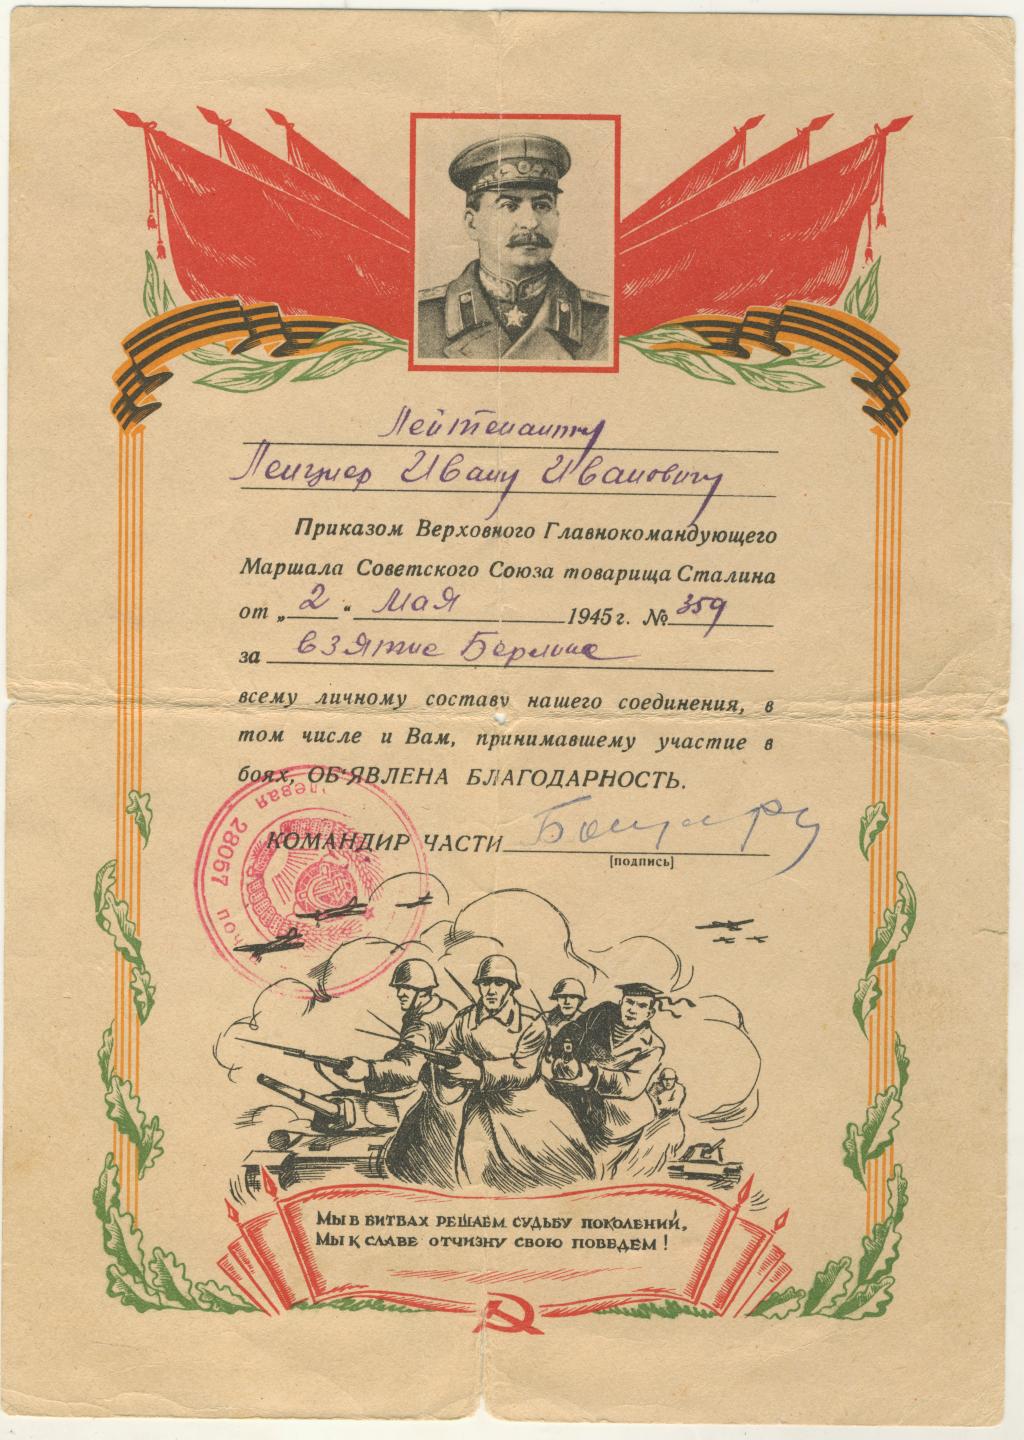 Лейтенанту
Ивану Ивановичу
Приказом Верховного Главнокомандующего
Маршала Советского Союза товарища Сталина
от „2“ мая 1945 г. № 359
за взятие Берлина
всему личному составу нашего соединения, в
том числе и Вам, принимавшему участие в
боях, ОБ'ЯВЛЕНА БЛАГОДАРНОСТЬ.
КОМАНДИР ЧАСТИ
[подпись]
28057
Мы в битвах решаем судьбу поколений,
Мы к славе отчизну свою поведем!